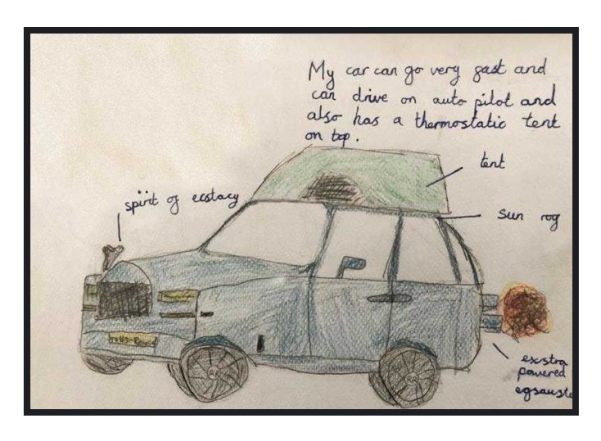 My car can go very fast and
can drive on auto pilot and
also has a thermostatic tent
on top.
tent
spirit of ecstacy
sun rof
rolls-Royce
exstra
powered
egsauste